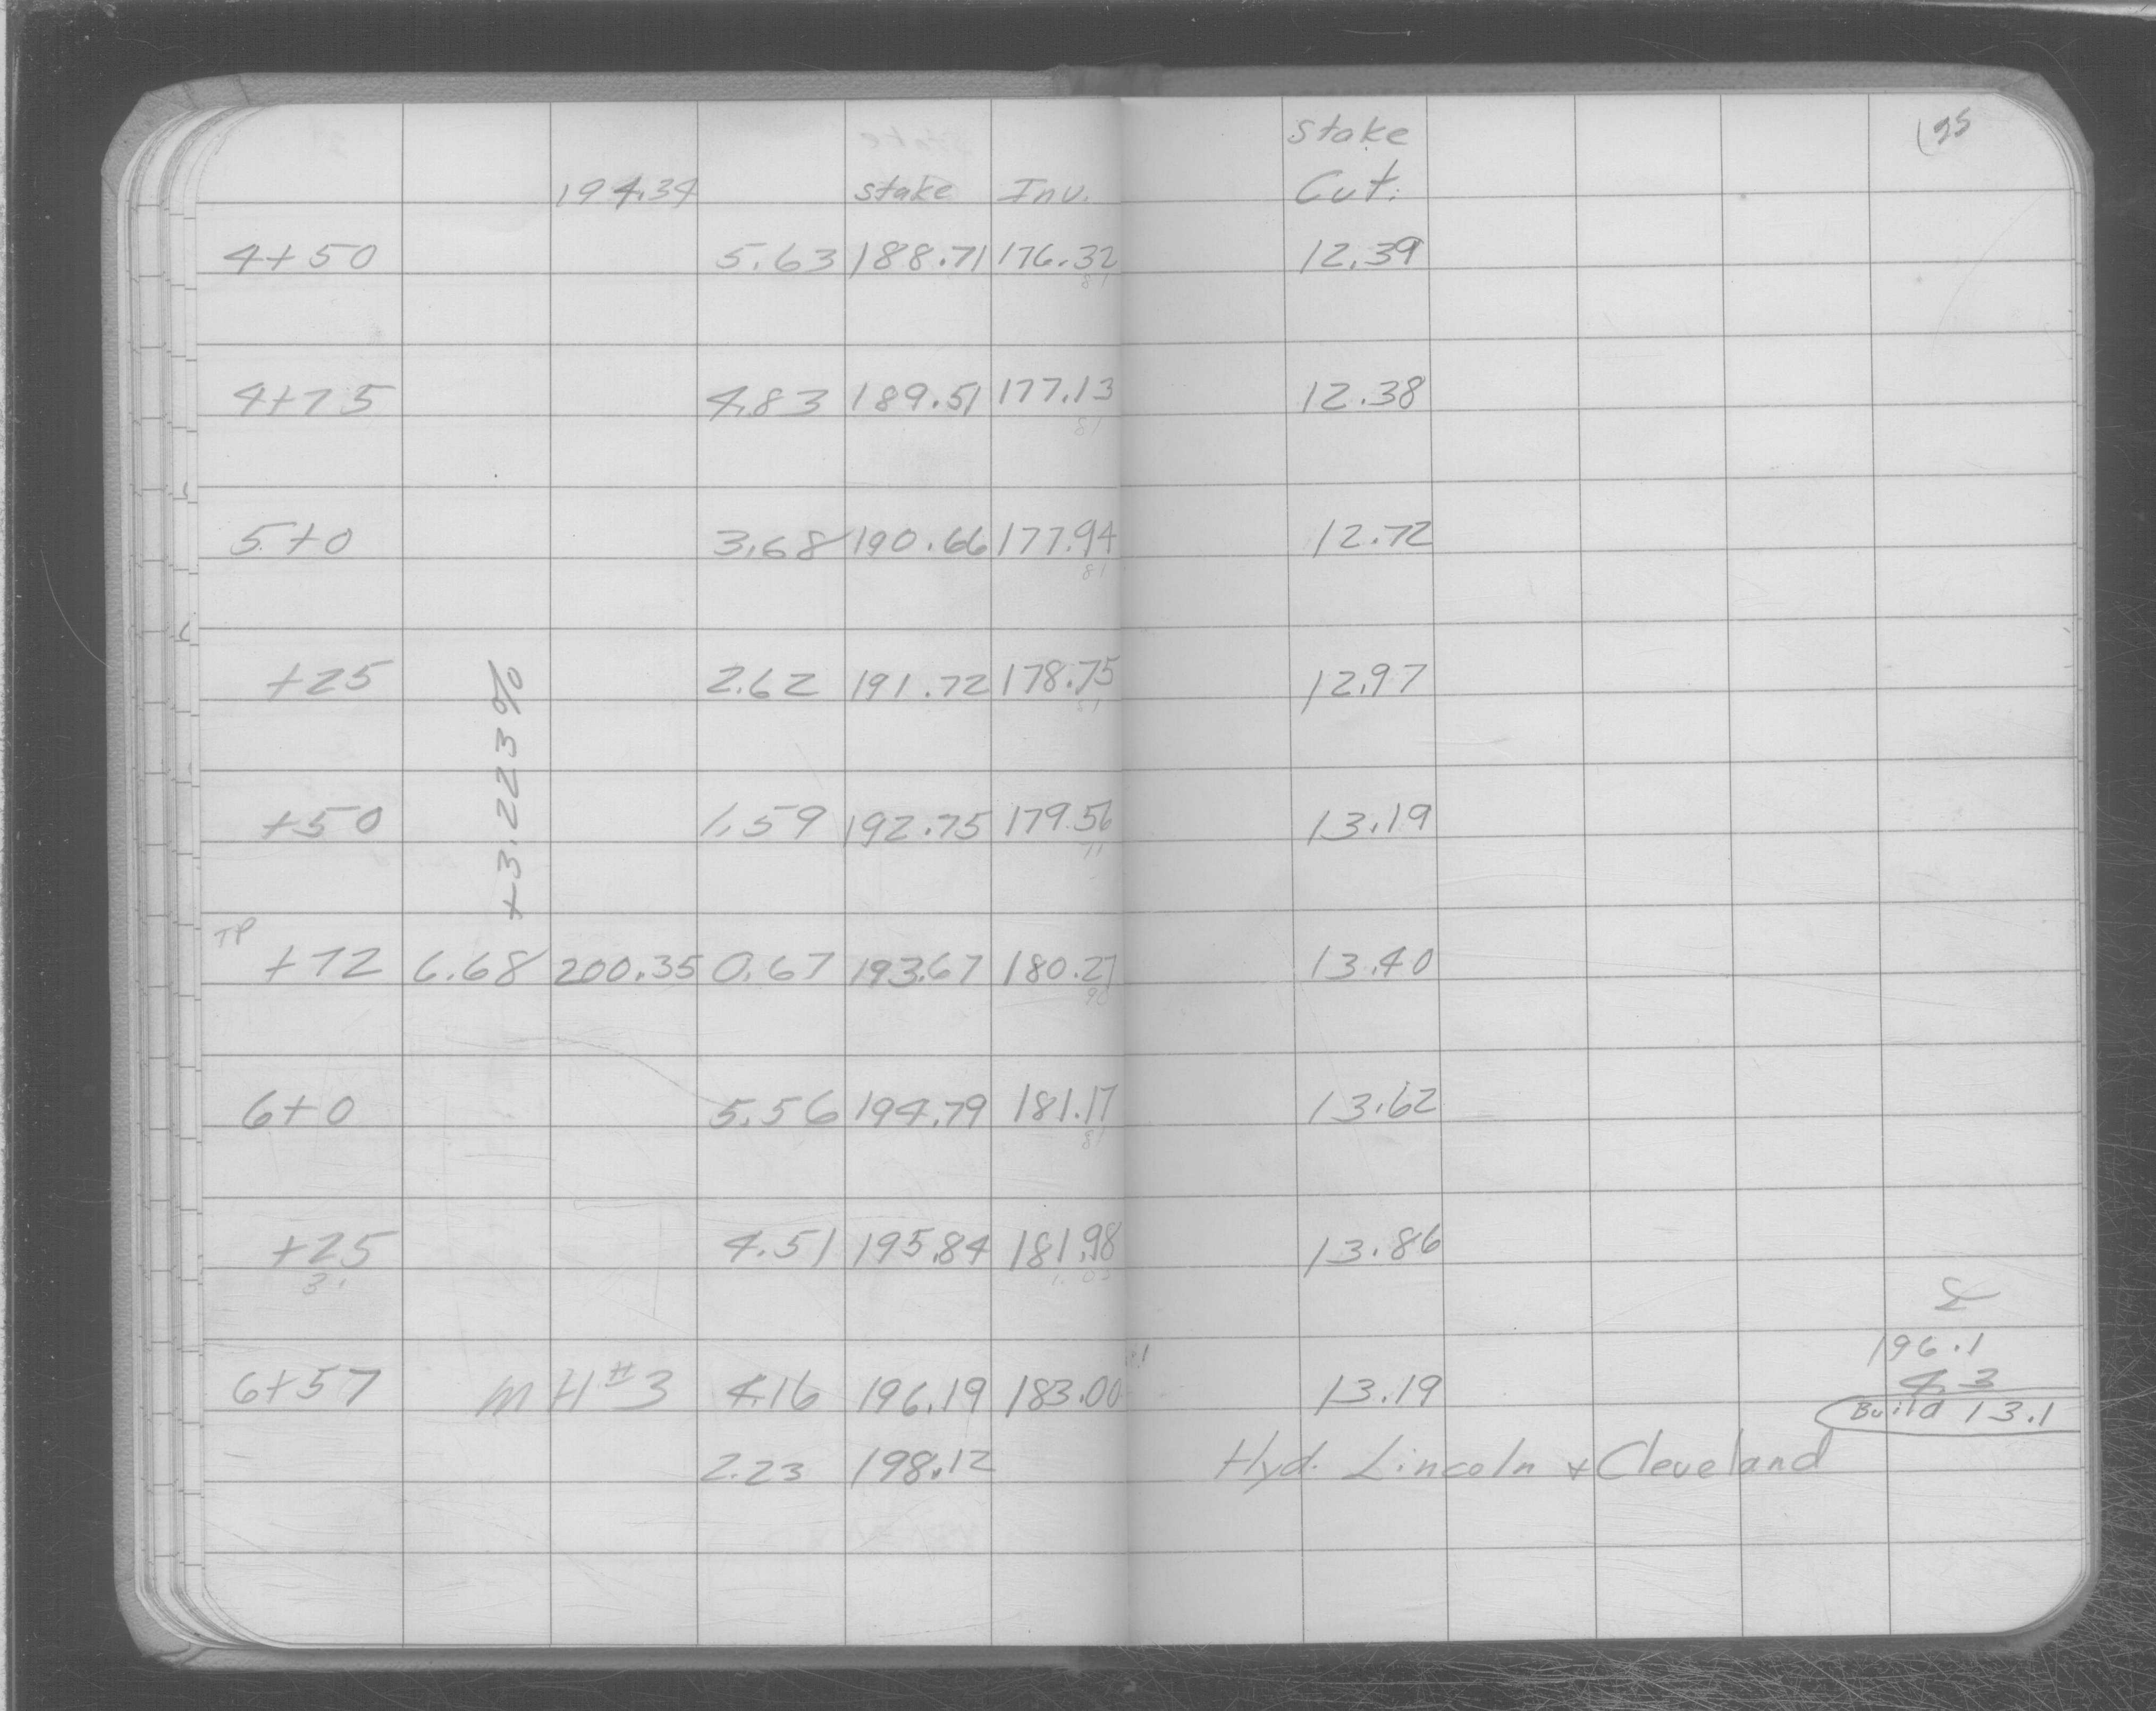 stake 25
194.34 stake Inv. Cut.
4+50 5.63 188.71 176.32 12.39
81
4+75 4.83 189.51 177.13 12.38
81
5+0 3.68 190.66 177.94 12.72
81
+25 2.62 191.72 178.75 12.97
81
+3.223%
+50 1.59 192.75 179.56 13.19
71
TP
+72 6.68 200.35 0.67 193.67 180.27 13.40
90
6+0 5.56 194.79 181.17 13.62
81
+25 4.51 195.84 181.98 13.86
196.1
6+57 MH#3 4.16 196.19 183.00 13.19 4.3
Build 13.1
2.23 198.12 Hyd. Lincoln + Cleveland